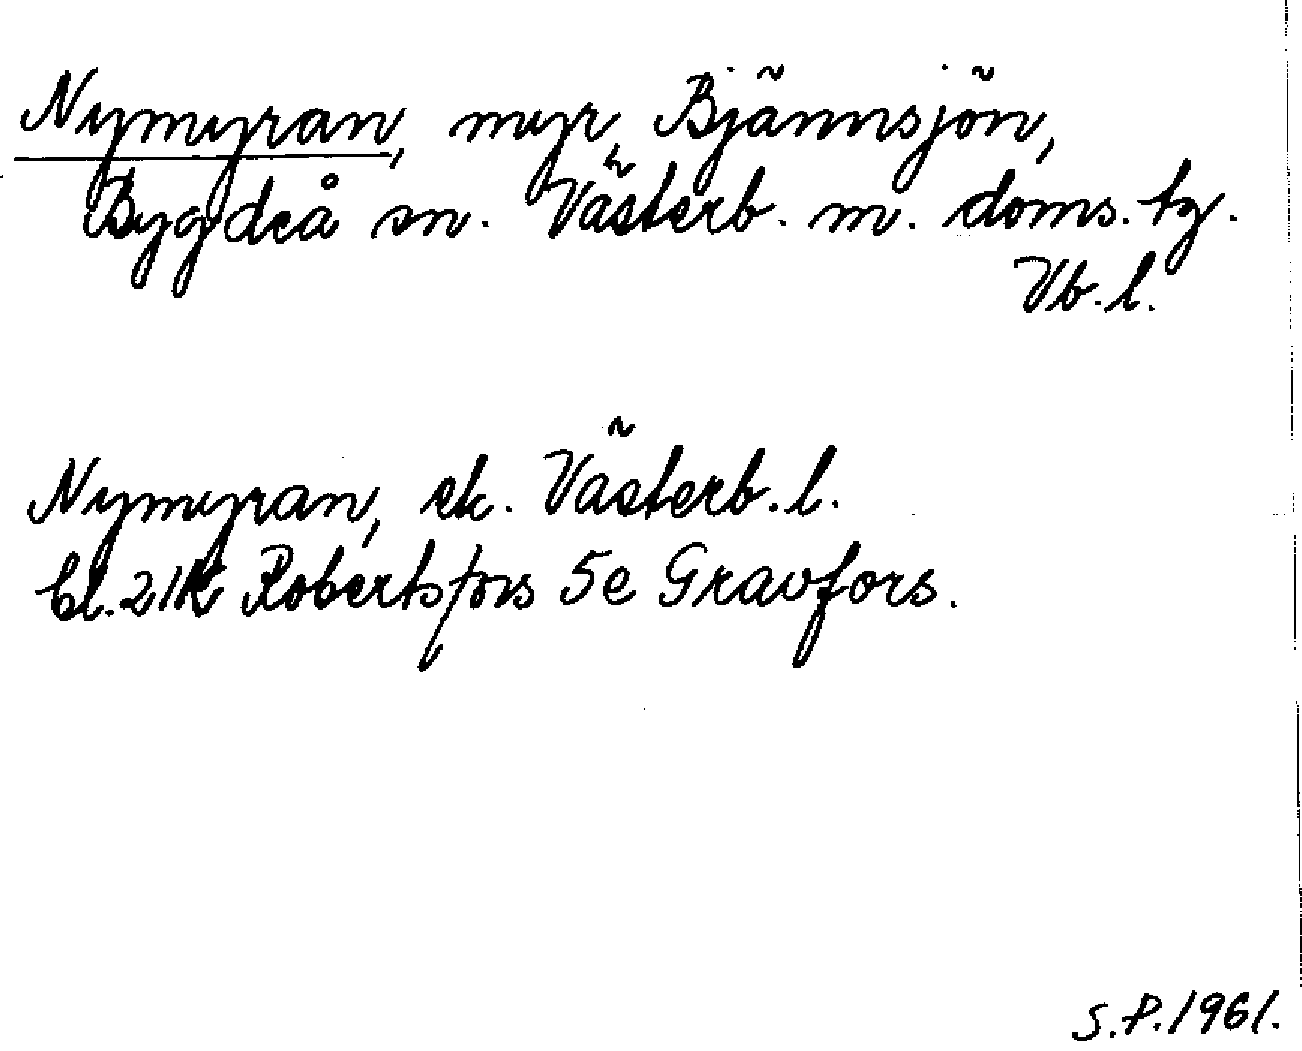 Nymyran, myr, Bjännsjön,
Bygdeå sn. Västerb. m. doms. tg.
Vb. l.
Nymyran, ek. Västerb. l.
bl. 21K Robertsfors 5e Gravfors.
S.P. 1961.